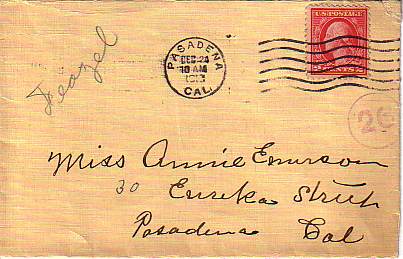 PASADENA
DEC 24
10 AM
1913
CAL.
U.S. POSTAGE
CENTS
26
Miss Annie Emerson
30 Eureka Street
Pasadena Cal